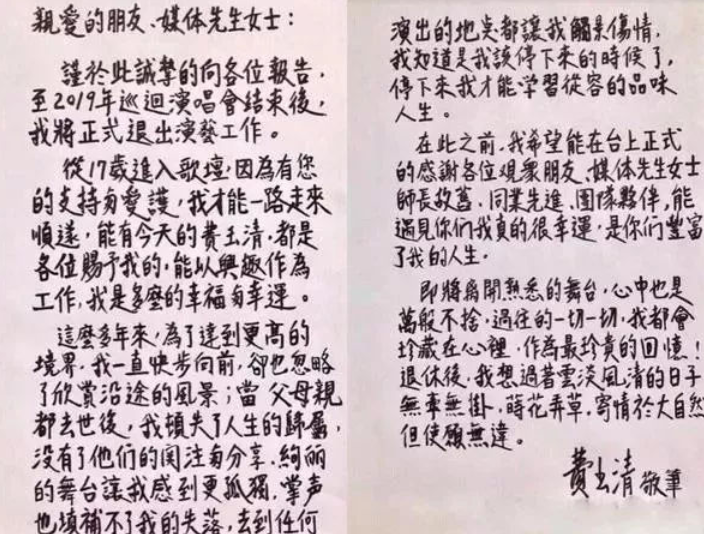 親愛的朋友、媒体先生女士：
謹於此誠摯的向各位報告，
至2019年巡迴演唱會結束後，
我將正式退出演藝工作。
從17歲進入歌壇，因為有您
的支持与愛護，我才能一路走來
順遂，能有今天的費玉清，都是
各位賜予我的，能以興趣作為
工作，我是多麼的幸福与幸運。
這麼多年來，為了達到更高的
境界，我一直快步向前，卻也忽略
了欣賞沿途的風景；當父母親
都去世後，我頓失了人生的歸屬，
沒有了他們的関注与分享，絢丽
的舞台讓我感到更孤獨，掌声
也填補不了我的失落，去到任何
演出的地点都讓我觸景傷情，
我知道是我該停下來的時候了，
停下來我才能学習從容的品味
人生。
在此之前，我希望能在台上正式
的感謝各位观衆朋友、媒体先生女士
師長故舊、同業先進、团隊夥伴，能
遇見你们我真的很幸運，是你们豐富
了我的人生。
即將离開熟悉的舞台，心中也是
萬般不捨，過往的一切一切，我都會
珍藏在心裡，作為最珍貴的回憶！
退休後，我想過著雲淡風清的日子
無牽無掛，蒔花弄草，寄情於大自然
但使願無違。
費玉清 敬筆